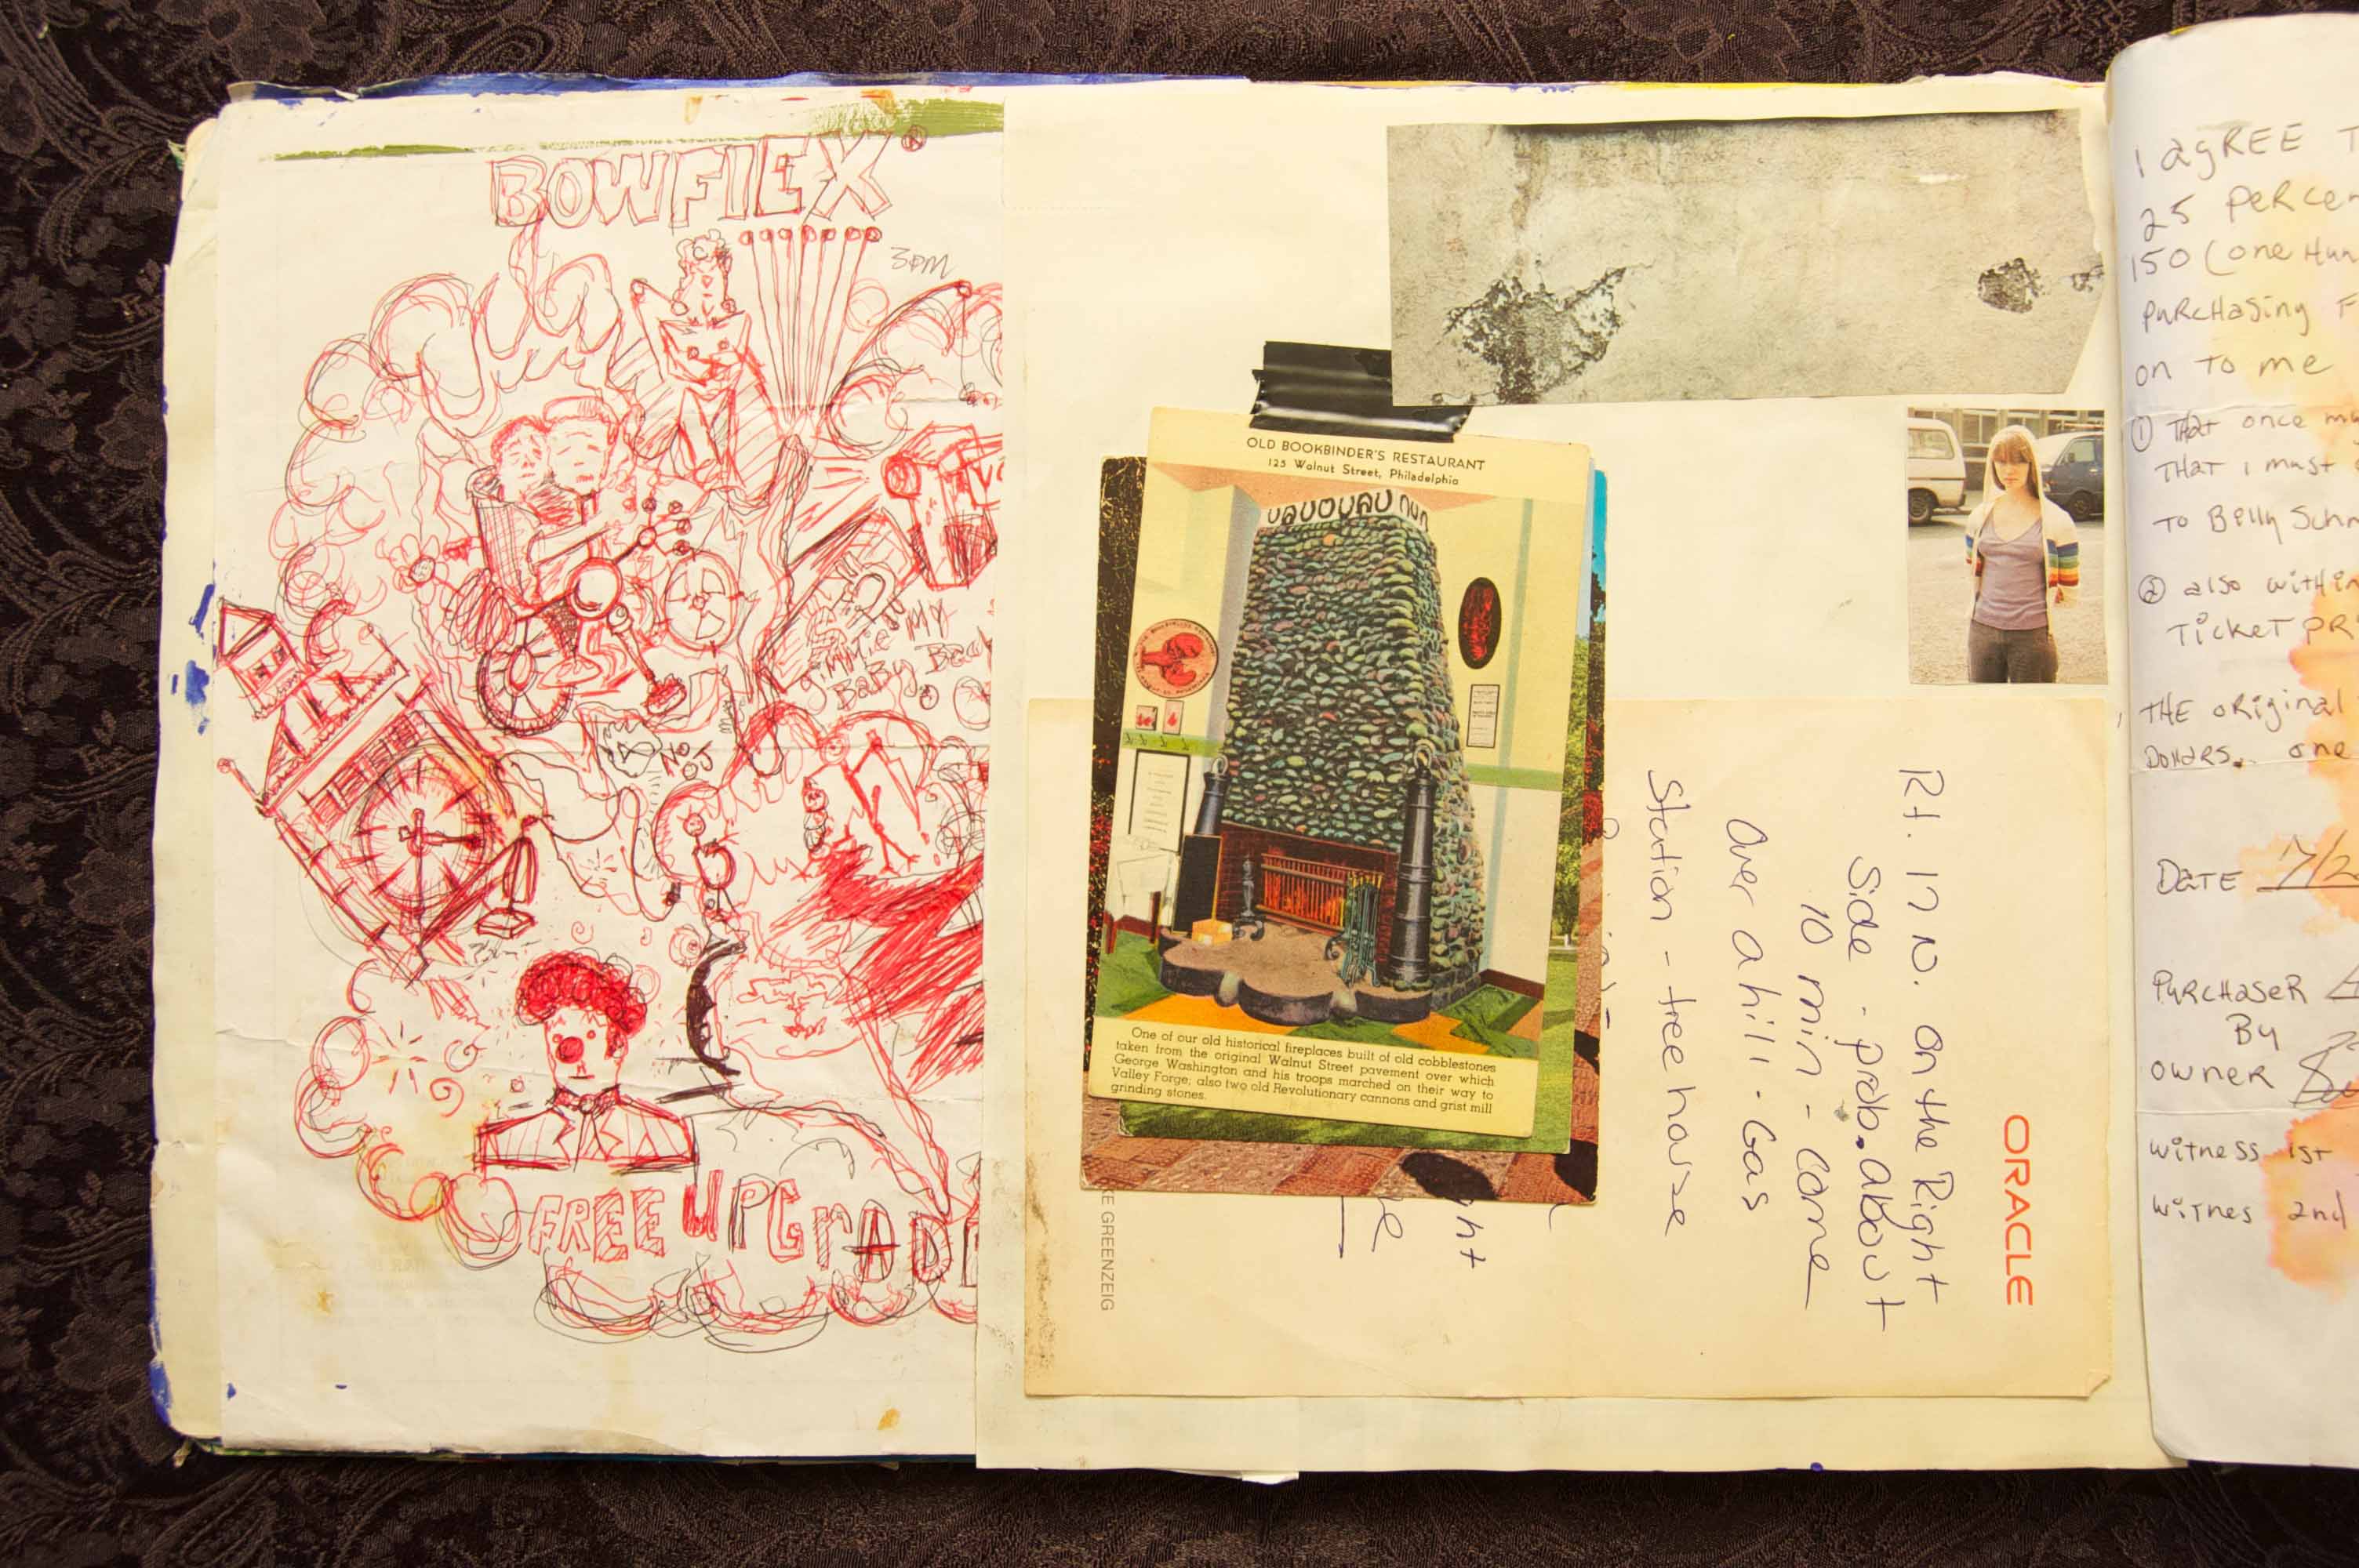 BOWFLEX®
3PM
Gimmie MY
BABY Back
NO
OJ
FREE UPGrADE
OLD BOOKBINDER'S RESTAURANT
125 Walnut Street, Philadelphia
One of our old historical fireplaces built of old cobblestones
taken from the original Walnut Street pavement over which
George Washington and his troops marched on their way to
Valley Forge; also two old Revolutionary cannons and grist mill
grinding stones.
ORACLE
Rt. 17 N. on the Right
Side - prob. about
10 min - come
Over a hill - Gas
Station - tree house
ght
KE GREENZEIG
I agREE T
25 PeRcen
150 (one Hun
PuRcHasing F
on To me
① THaT once mu
THaT I must
To Billy Schm
② also within
TickeT PRi
THE oRiginal
DollaRs. one
DaTE 7/2
PuRcHaseR
By
owneR
witness 1st
witnes 2nd